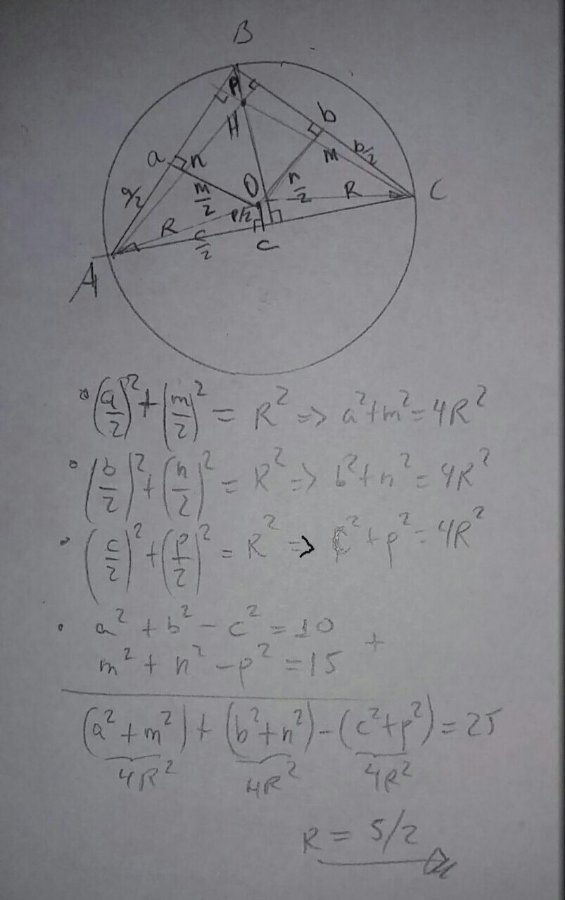 B
P
H
a
n
b
m
b/2
a/2
m/2
O
n/2
R
C
R
P/2
c/2
c
A
(a/2)² + (m/2)² = R² => a²+m²=4R²
(b/2)² + (n/2)² = R² => b²+n²=4R²
(c/2)² + (p/2)² = R² => c²+p²=4R²
a² + b² - c² = 10
+
m² + n² - p² = 15
(a²+m²) + (b²+n²) - (c²+p²) = 25
4R² 4R² 4R²
R = 5/2